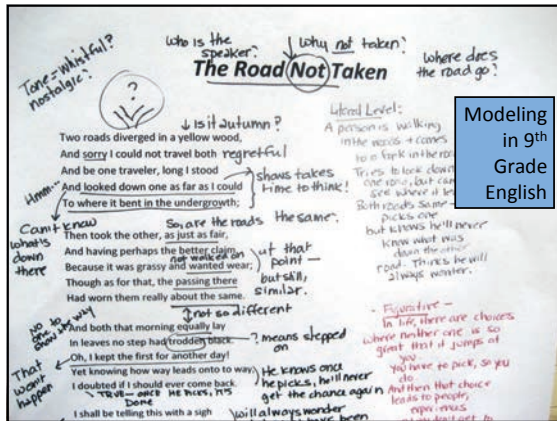 who is the
speaker?
↓ Why not taken?
where does
the road go?
Tone = whistful?
nostalgic?
The Road Not Taken
?
↓ Is it autumn?
Two roads diverged in a yellow wood,
And sorry I could not travel both regretful
And be one traveler, long I stood
And looked down one as far as I could
To where it bent in the undergrowth;
shows takes
time to think!
Hmm...
Can't know
what's
down
there
So, are the roads the same?
Then took the other, as just as fair,
And having perhaps the better claim,
not walked on
Because it was grassy and wanted wear;
Though as for that, the passing there
Had worn them really about the same.
ut that
point —
but still,
similar.
not so different
No one to
show why
And both that morning equally lay
In leaves no step had trodden black.
? means stepped
on
Oh, I kept the first for another day!
That
won't
happen
Yet knowing how way leads onto way,
I doubted if I should ever come back.
He knows once
he picks, he'll never
get the chance again
TRUE - once he picks, it's
Done
I shall be telling this with a sigh
will always wonder
have been
Literal Level:
A person is walking
in the woods + comes
to a fork in the road
Tries to look down
one road, but can
see where it
Both roads same —
picks one
but knows he'll never
know what was
down the other
road. Thinks he will
always wonder.
- Figurative -
In life, there are choices
where neither one is so
great that it jumps at
you.
You have to pick, so you
do.
And then that choice
leads to people,
experiences
get to
Modeling
in 9th
Grade
English